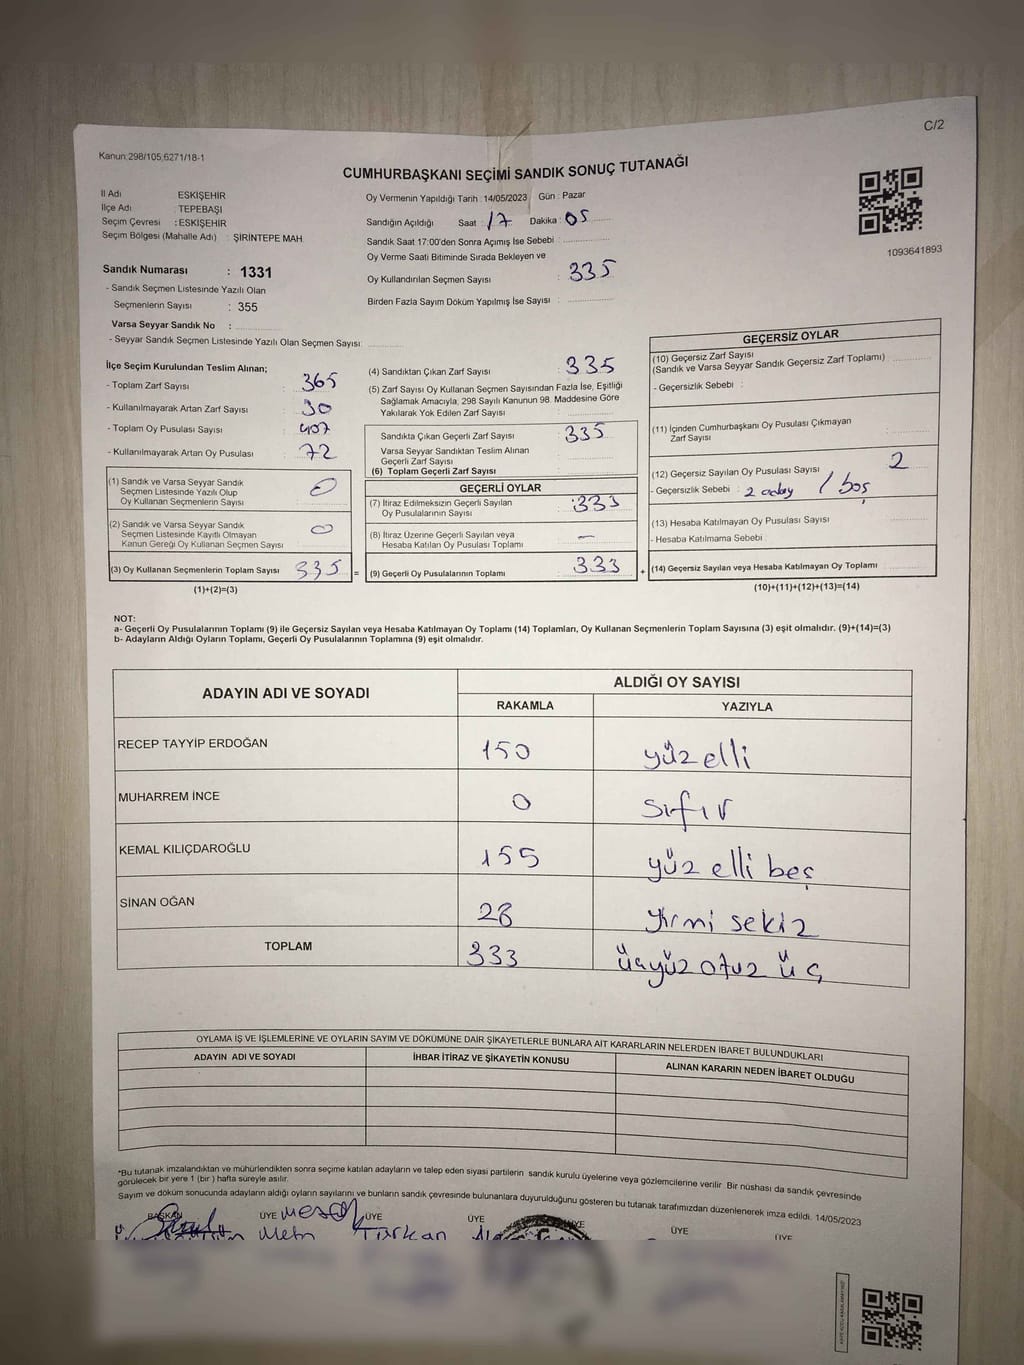 C/2
Kanun:298/105,6271/18-1
CUMHURBAŞKANI SEÇİMİ SANDIK SONUÇ TUTANAĞI
İl Adı : ESKİŞEHİR
İlçe Adı : TEPEBAŞI
Seçim Çevresi : ESKİŞEHİR
Seçim Bölgesi (Mahalle Adı) : ŞİRİNTEPE MAH.
Sandık Numarası : 1331
- Sandık Seçmen Listesinde Yazılı Olan
Seçmenlerin Sayısı : 355
Varsa Seyyar Sandık No :
- Seyyar Sandık Seçmen Listesinde Yazılı Olan Seçmen Sayısı:
Oy Vermenin Yapıldığı Tarih : 14/05/2023 Gün : Pazar
Sandığın Açıldığı Saat : 17 Dakika : 05
Sandık Saat 17:00'den Sonra Açımış İse Sebebi :
Oy Verme Saati Bitiminde Sırada Bekleyen ve
Oy Kullandırılan Seçmen Sayısı : 335
Birden Fazla Sayım Döküm Yapılmış İse Sayısı :
1093641893
İlçe Seçim Kurulundan Teslim Alınan;
- Toplam Zarf Sayısı : 365
- Kullanılmayarak Artan Zarf Sayısı : 30
- Toplam Oy Pusulası Sayısı : 407
- Kullanılmayarak Artan Oy Pusulası : 72
(1) Sandık ve Varsa Seyyar Sandık
Seçmen Listesinde Yazılı Olup
Oy Kullanan Seçmenlerin Sayısı : 0
(2) Sandık ve Varsa Seyyar Sandık
Seçmen Listesinde Kayıtlı Olmayan
Kanun Gereği Oy Kullanan Seçmen Sayısı : 0
(3) Oy Kullanan Seçmenlerin Toplam Sayısı 335 =
(1)+(2)=(3)
(4) Sandıktan Çıkan Zarf Sayısı : 335
(5) Zarf Sayısı Oy Kullanan Seçmen Sayısından Fazla İse, Eşitliği
Sağlamak Amacıyla, 298 Sayılı Kanunun 98. Maddesine Göre
Yakılarak Yok Edilen Zarf Sayısı :
Sandıkta Çıkan Geçerli Zarf Sayısı : 335
Varsa Seyyar Sandıktan Teslim Alınan
Geçerli Zarf Sayısı :
(6) Toplam Geçerli Zarf Sayısı :
GEÇERLİ OYLAR
(7) İtiraz Edilmeksizin Geçerli Sayılan
Oy Pusulalarının Sayısı : 333
(8) İtiraz Üzerine Geçerli Sayılan veya
Hesaba Katılan Oy Pusulası Toplamı : -
(9) Geçerli Oy Pusulalarının Toplamı : 333 +
GEÇERSİZ OYLAR
(10) Geçersiz Zarf Sayısı
(Sandık ve Varsa Seyyar Sandık Geçersiz Zarf Toplamı)
- Geçersizlik Sebebi :
(11) İçinden Cumhurbaşkanı Oy Pusulası Çıkmayan
Zarf Sayısı
(12) Geçersiz Sayılan Oy Pusulası Sayısı : 2
- Geçersizlik Sebebi : 2 aday / boş
(13) Hesaba Katılmayan Oy Pusulası Sayısı
- Hesaba Katılmama Sebebi :
(14) Geçersiz Sayılan veya Hesaba Katılmayan Oy Toplamı
(10)+(11)+(12)+(13)=(14)
NOT:
a- Geçerli Oy Pusulalarının Toplamı (9) ile Geçersiz Sayılan veya Hesaba Katılmayan Oy Toplamı (14) Toplamları, Oy Kullanan Seçmenlerin Toplam Sayısına (3) eşit olmalıdır. (9)+(14)=(3)
b- Adayların Aldığı Oyların Toplamı, Geçerli Oy Pusulalarının Toplamına (9) eşit olmalıdır.
ADAYIN ADI VE SOYADI ALDIĞI OY SAYISI
RAKAMLA YAZIYLA
RECEP TAYYİP ERDOĞAN 150 yüz elli
MUHARREM İNCE 0 sıfır
KEMAL KILIÇDAROĞLU 155 yüz elli beş
SİNAN OĞAN 28 yirmi sekiz
TOPLAM 333 üçyüz otuz üç
OYLAMA İŞ VE İŞLEMLERİNE VE OYLARIN SAYIM VE DÖKÜMÜNE DAİR ŞİKAYETLERLE BUNLARA AİT KARARLARIN NELERDEN İBARET BULUNDUKLARI
ADAYIN ADI VE SOYADI İHBAR İTİRAZ VE ŞİKAYETİN KONUSU ALINAN KARARIN NEDEN İBARET OLDUĞU
*Bu tutanak imzalandıktan ve mühürlendikten sonra seçime katılan adayların ve talep eden siyasi partilerin sandık kurulu üyelerine veya gözlemcilerine verilir. Bir nüshası da sandık çevresinde
görülecek bir yere 1 (bir) hafta süreyle asılır.
Sayım ve döküm sonucunda adayların aldığı oyların sayılarını ve bunların sandık çevresinde bulunanlara duyurulduğunu gösteren bu tutanak tarafımızdan düzenlenerek imza edildi. 14/05/2023
BAŞKAN ÜYE ÜYE ÜYE ÜYE ÜYE ÜYE
Metn Türkan